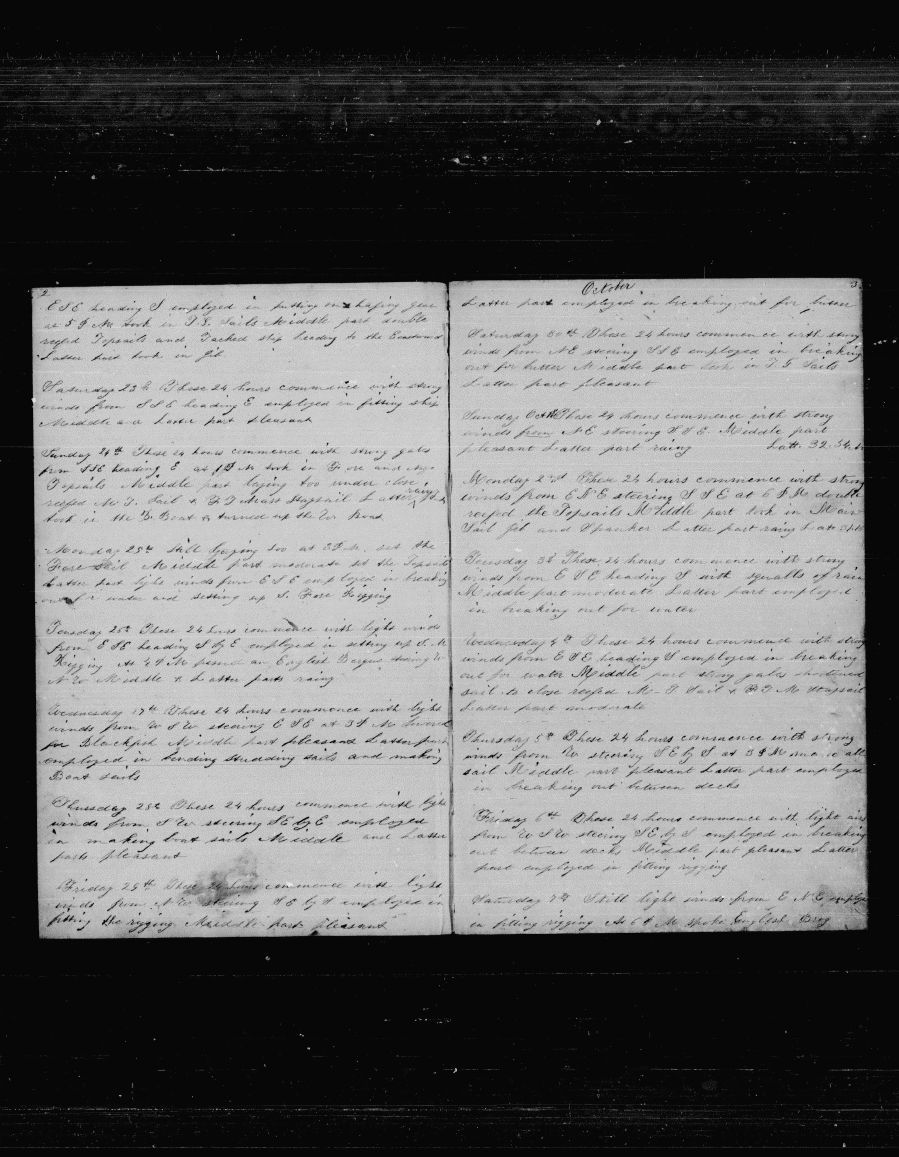 2
E S E heading S employed in putting on chafing gear
at 5 P M took in T. G. Sails Middle part double
reefed Topsails and Tacked ship heading to the Eastward
Latter part took in Jib
Saturday 23th These 24 hours commence with strong
winds from S S E heading E employed in fitting ship
Middle and Latter part pleasant
Sunday 24th These 24 hours commence with strong gales
from SSE heading E at P M took in Fore and
Topsails Middle part laying too under close
reefed M. T. Sail & F T Mast Staysail Latter rainy
took in the B. Boat & turned up the W Boat
Monday 25th Still laying too at 3 P M. set the
Fore Sail Middle part moderate set the Topsails
Latter part light winds from E S E employed in breaking
out for water and setting up S. Fore Rigging
Tuesday 26th These 24 hours commence with light winds
from E S E heading S by E employed in setting up S. M
Rigging At 4 P M passed an English Barque
N W Middle & Latter parts rainy
Wednesday 27th These 24 hours commence with light
winds from W S W steering E S E at 3 P M lowered
for Blackfish Middle part pleasant Latter part
employed in bending Studding sails and making
Boat sails
Thursday 28th These 24 hours commence with light
winds from S W steering S E by E employed
in making boat sails Middle and Latter
parts pleasant
Friday 29th These 24 hours commence with light
winds from N W steering S E by S employed in
fitting the rigging Middle part pleasant
October
3
Latter part employed in breaking out for butter
Saturday 30th These 24 hours commence with strong
winds from NE steering S S E employed in breaking
out for butter Middle part took in T G Sails
Latter part pleasant
Sunday Oct 1st These 24 hours commence with strong
winds from N E steering S S E Middle part
pleasant Latter part rainy Latt. 32.34
Monday 2nd These 24 hours commence with strong
winds from E N E steering S S E at 6 P M double
reefed the Topsails Middle part took in Main
Sail Jib and Spanker Latter part rainy Latt
Tuesday 3d These 24 hours commence with strong
winds from E S E heading S with squalls of rain
Middle part moderate Latter part employed
in breaking out for water
Wednesday 4th These 24 hours commence with strong
winds from E S E heading S employed in breaking
out for water Middle part strong gales shortened
sail to close reefed M. T Sail & F. T. M Staysail
Latter part moderate
Thursday 5th These 24 hours commence with strong
winds from W steering S E by S at 3 P M made all
sail Middle part pleasant Latter part employed
in breaking out between decks
Friday 6th These 24 hours commence with light airs
from W S W steering S E by S employed in breaking
out between decks Middle part pleasant Latter
part employed in fitting rigging
Saturday 7th Still light winds from E N E employed
in fitting rigging At 6 P. M. spoke English Brig